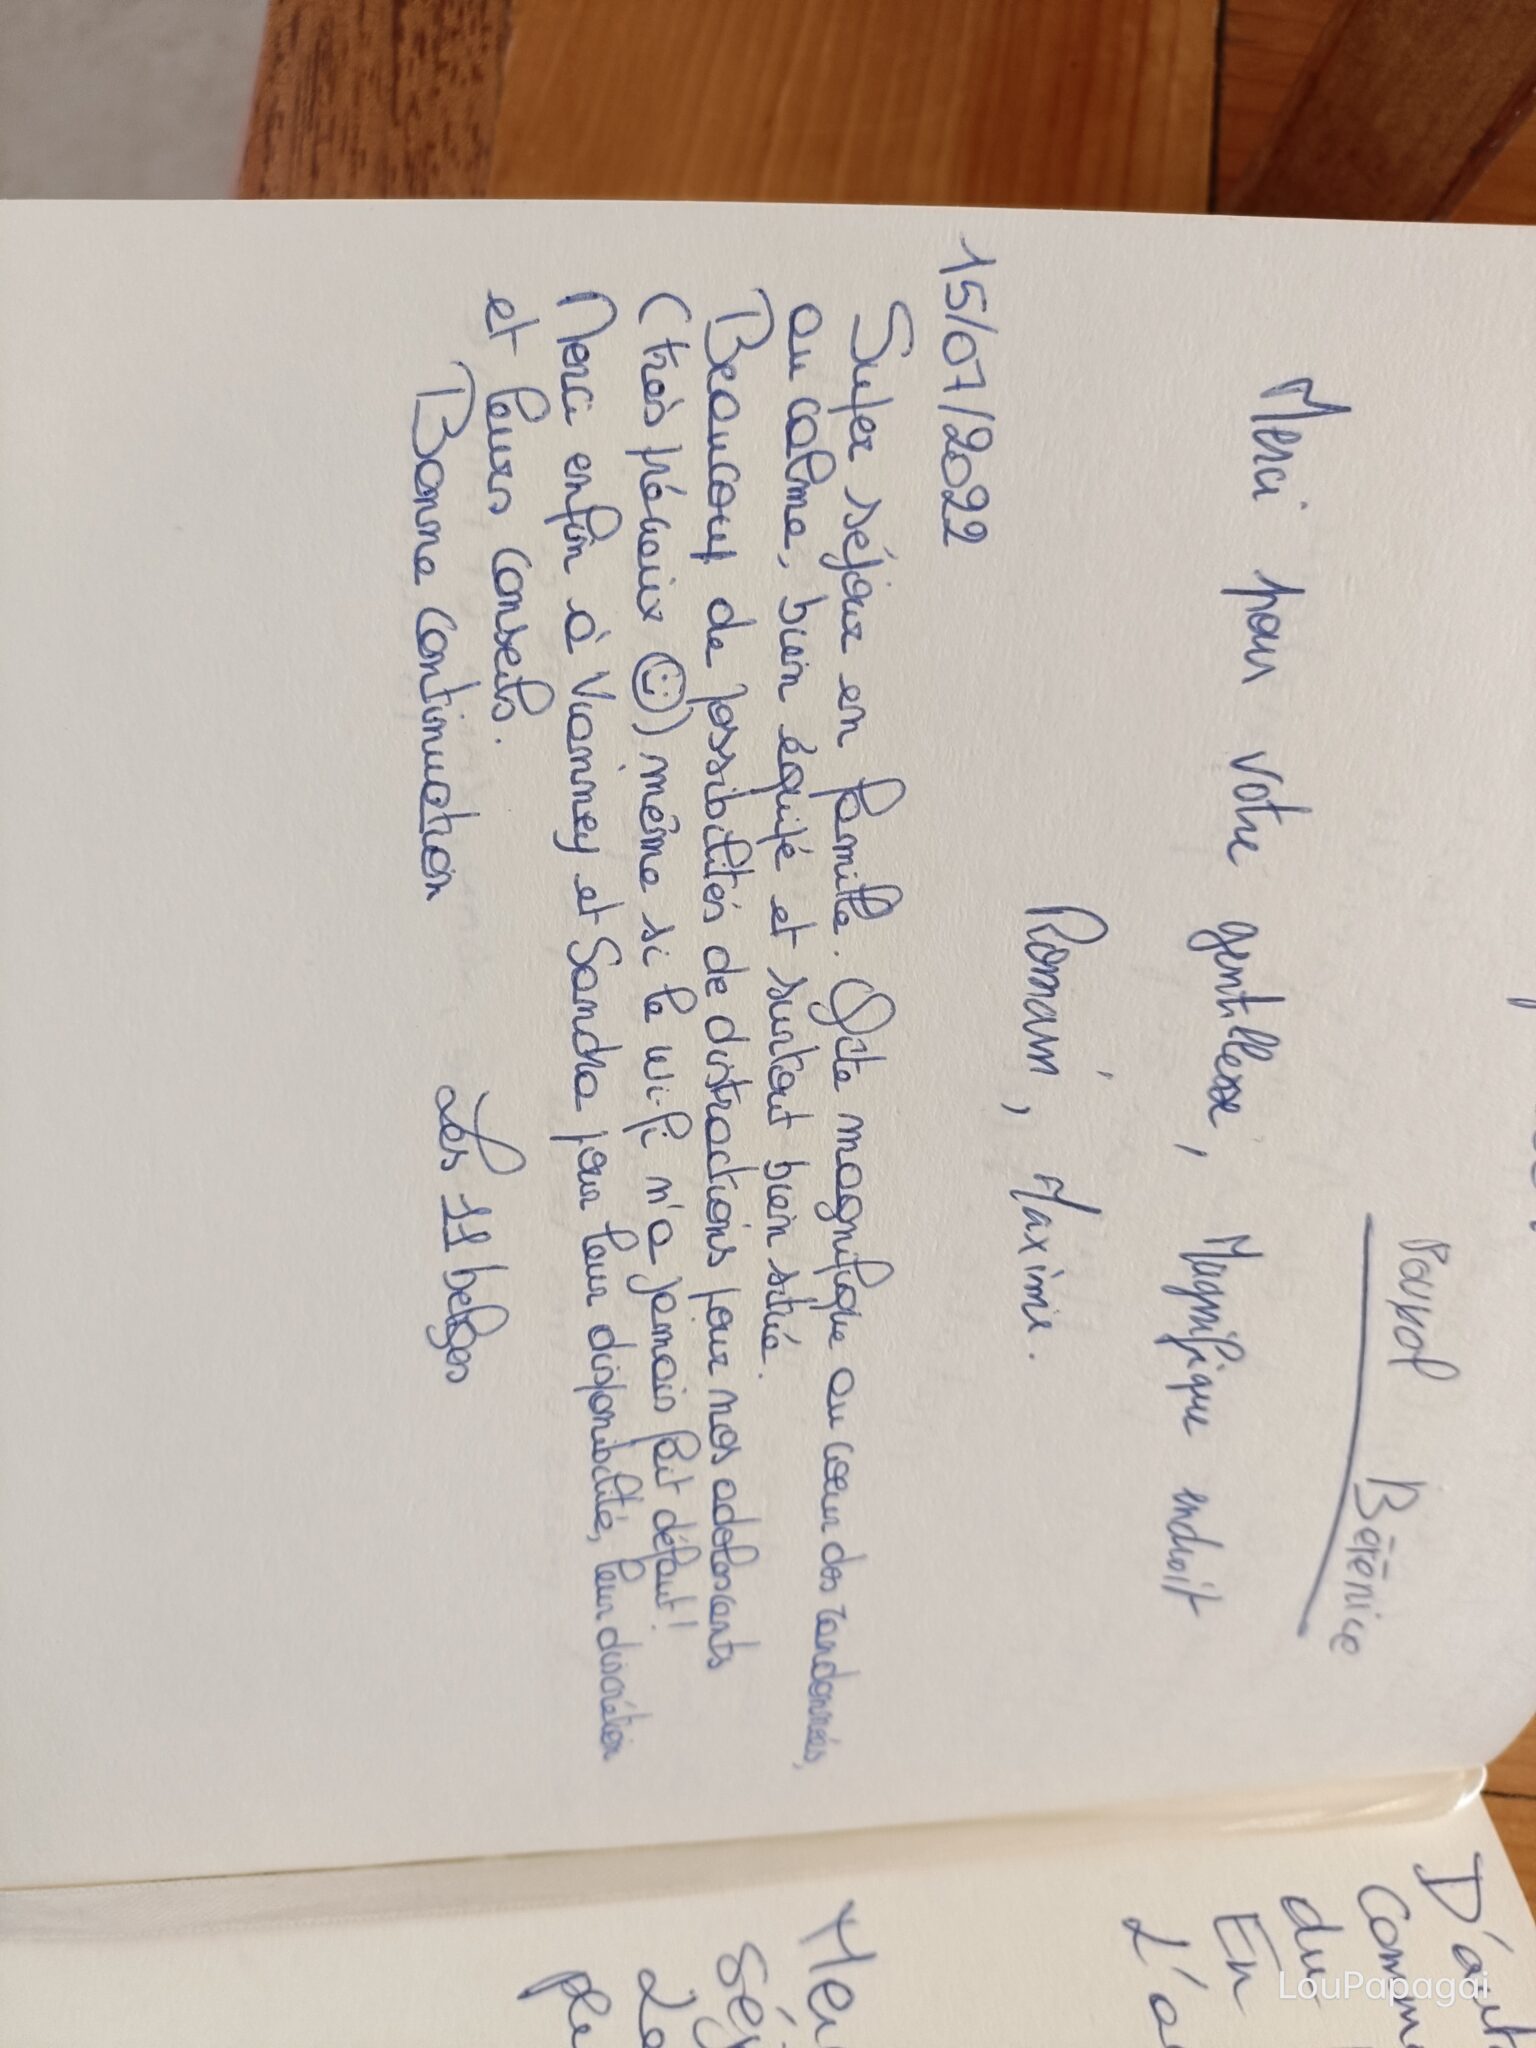 Bérénice
Merci pour votre gentillesse, Magnifique endroit
Romain, Maxime.
15/07/2022
Super séjour en famille. Gîte magnifique au cœur des randonnées,
au calme, bien équipé et surtout bien situé.
Beaucoup de possibilités de distractions pour nos adolescents
(très précieux ☺) même si le wi-fi n'a jamais fait défaut!
Merci enfin à Vianney et Sandra pour leur disponibilité, leur discrétion
et leurs conseils.
Bonne continuation
Les 11 belges
D'aut
Comm
du
En
L'a
Mer
séj
Le
ple
LouPapagai